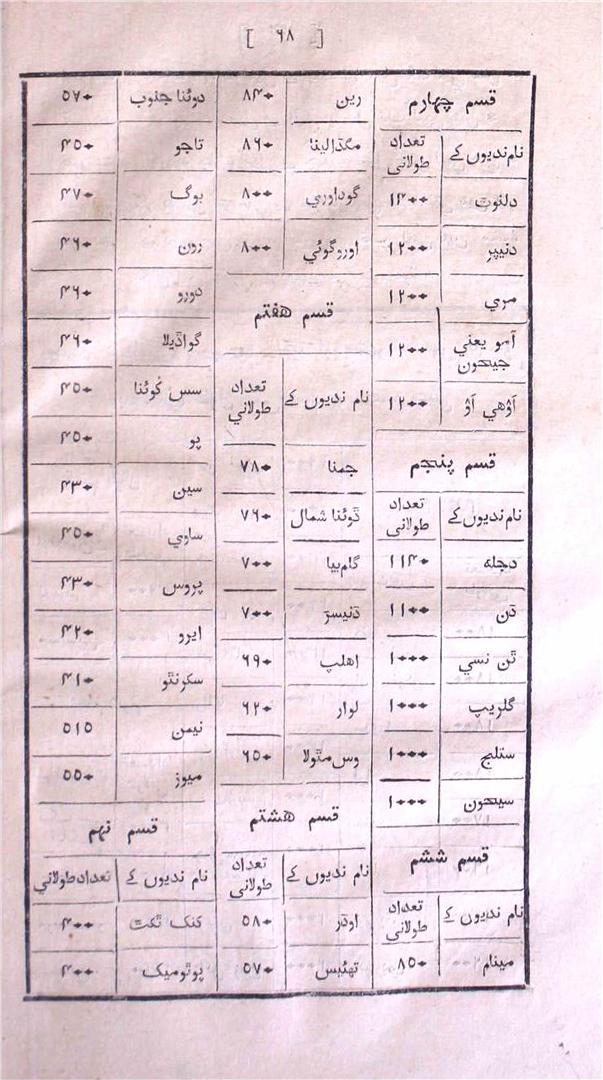 [ ۶۸ ]
قسم چہارم
نام ندیوں کے | تعداد طولانی
دلنوب | ۱۴۰۰
دنیپر | ۱۲۰۰
مري | ۱۲۰۰
آمو یعني جیحون | ۱۲۰۰
آؤهي آؤ | ۱۲۰۰
قسم پنجم
نام ندیوں کے | تعداد طولانی
دجلہ | ۱۱۴۰
ڈن | ۱۱۰۰
ٹن نسي | ۱۰۰۰
گلریپ | ۱۰۰۰
ستلج | ۱۰۰۰
سیحون | ۱۰۰۰
قسم ششم
نام ندیوں کے | تعداد طولانی
مینام | ۸۵۰
رین | ۸۴۰
مگڈالینا | ۸۶۰
گوداوري | ۸۰۰
اوروگوئي | ۸۰۰
قسم هفتم
نام ندیوں کے | تعداد طولاني
جمنا | ۷۸۰
ڈوئنا شمال | ۷۶۰
گام بیا | ۷۰۰
ڈنیسٹر | ۷۰۰
اهلپ | ۶۹۰
لوار | ۶۲۰
وس مٹولا | ۶۵۰
قسم هشتم
نام ندیوں کے | تعداد طولانی
اوڈر | ۵۸۰
تھئبس | ۵۷۰
دوئنا جنوب | ۵۷۰
تاجو | ۴۵۰
بوگ | ۴۷۰
رون | ۴۶۰
دورو | ۴۶۰
گواڈیلا | ۴۶۰
سس کوئنا | ۴۵۰
پو | ۴۵۰
سین | ۴۳۰
ساوي | ۴۵۰
پروس | ۴۳۰
ایرو | ۴۲۰
سکرنٹو | ۴۱۰
نیمن | ۵۱۵
میوز | ۵۵۰
قسم نهم
نام ندیوں کے | تعداد طولاني
کنک ٹکٹ | ۴۰۰
پوٹومیک | ۴۰۰